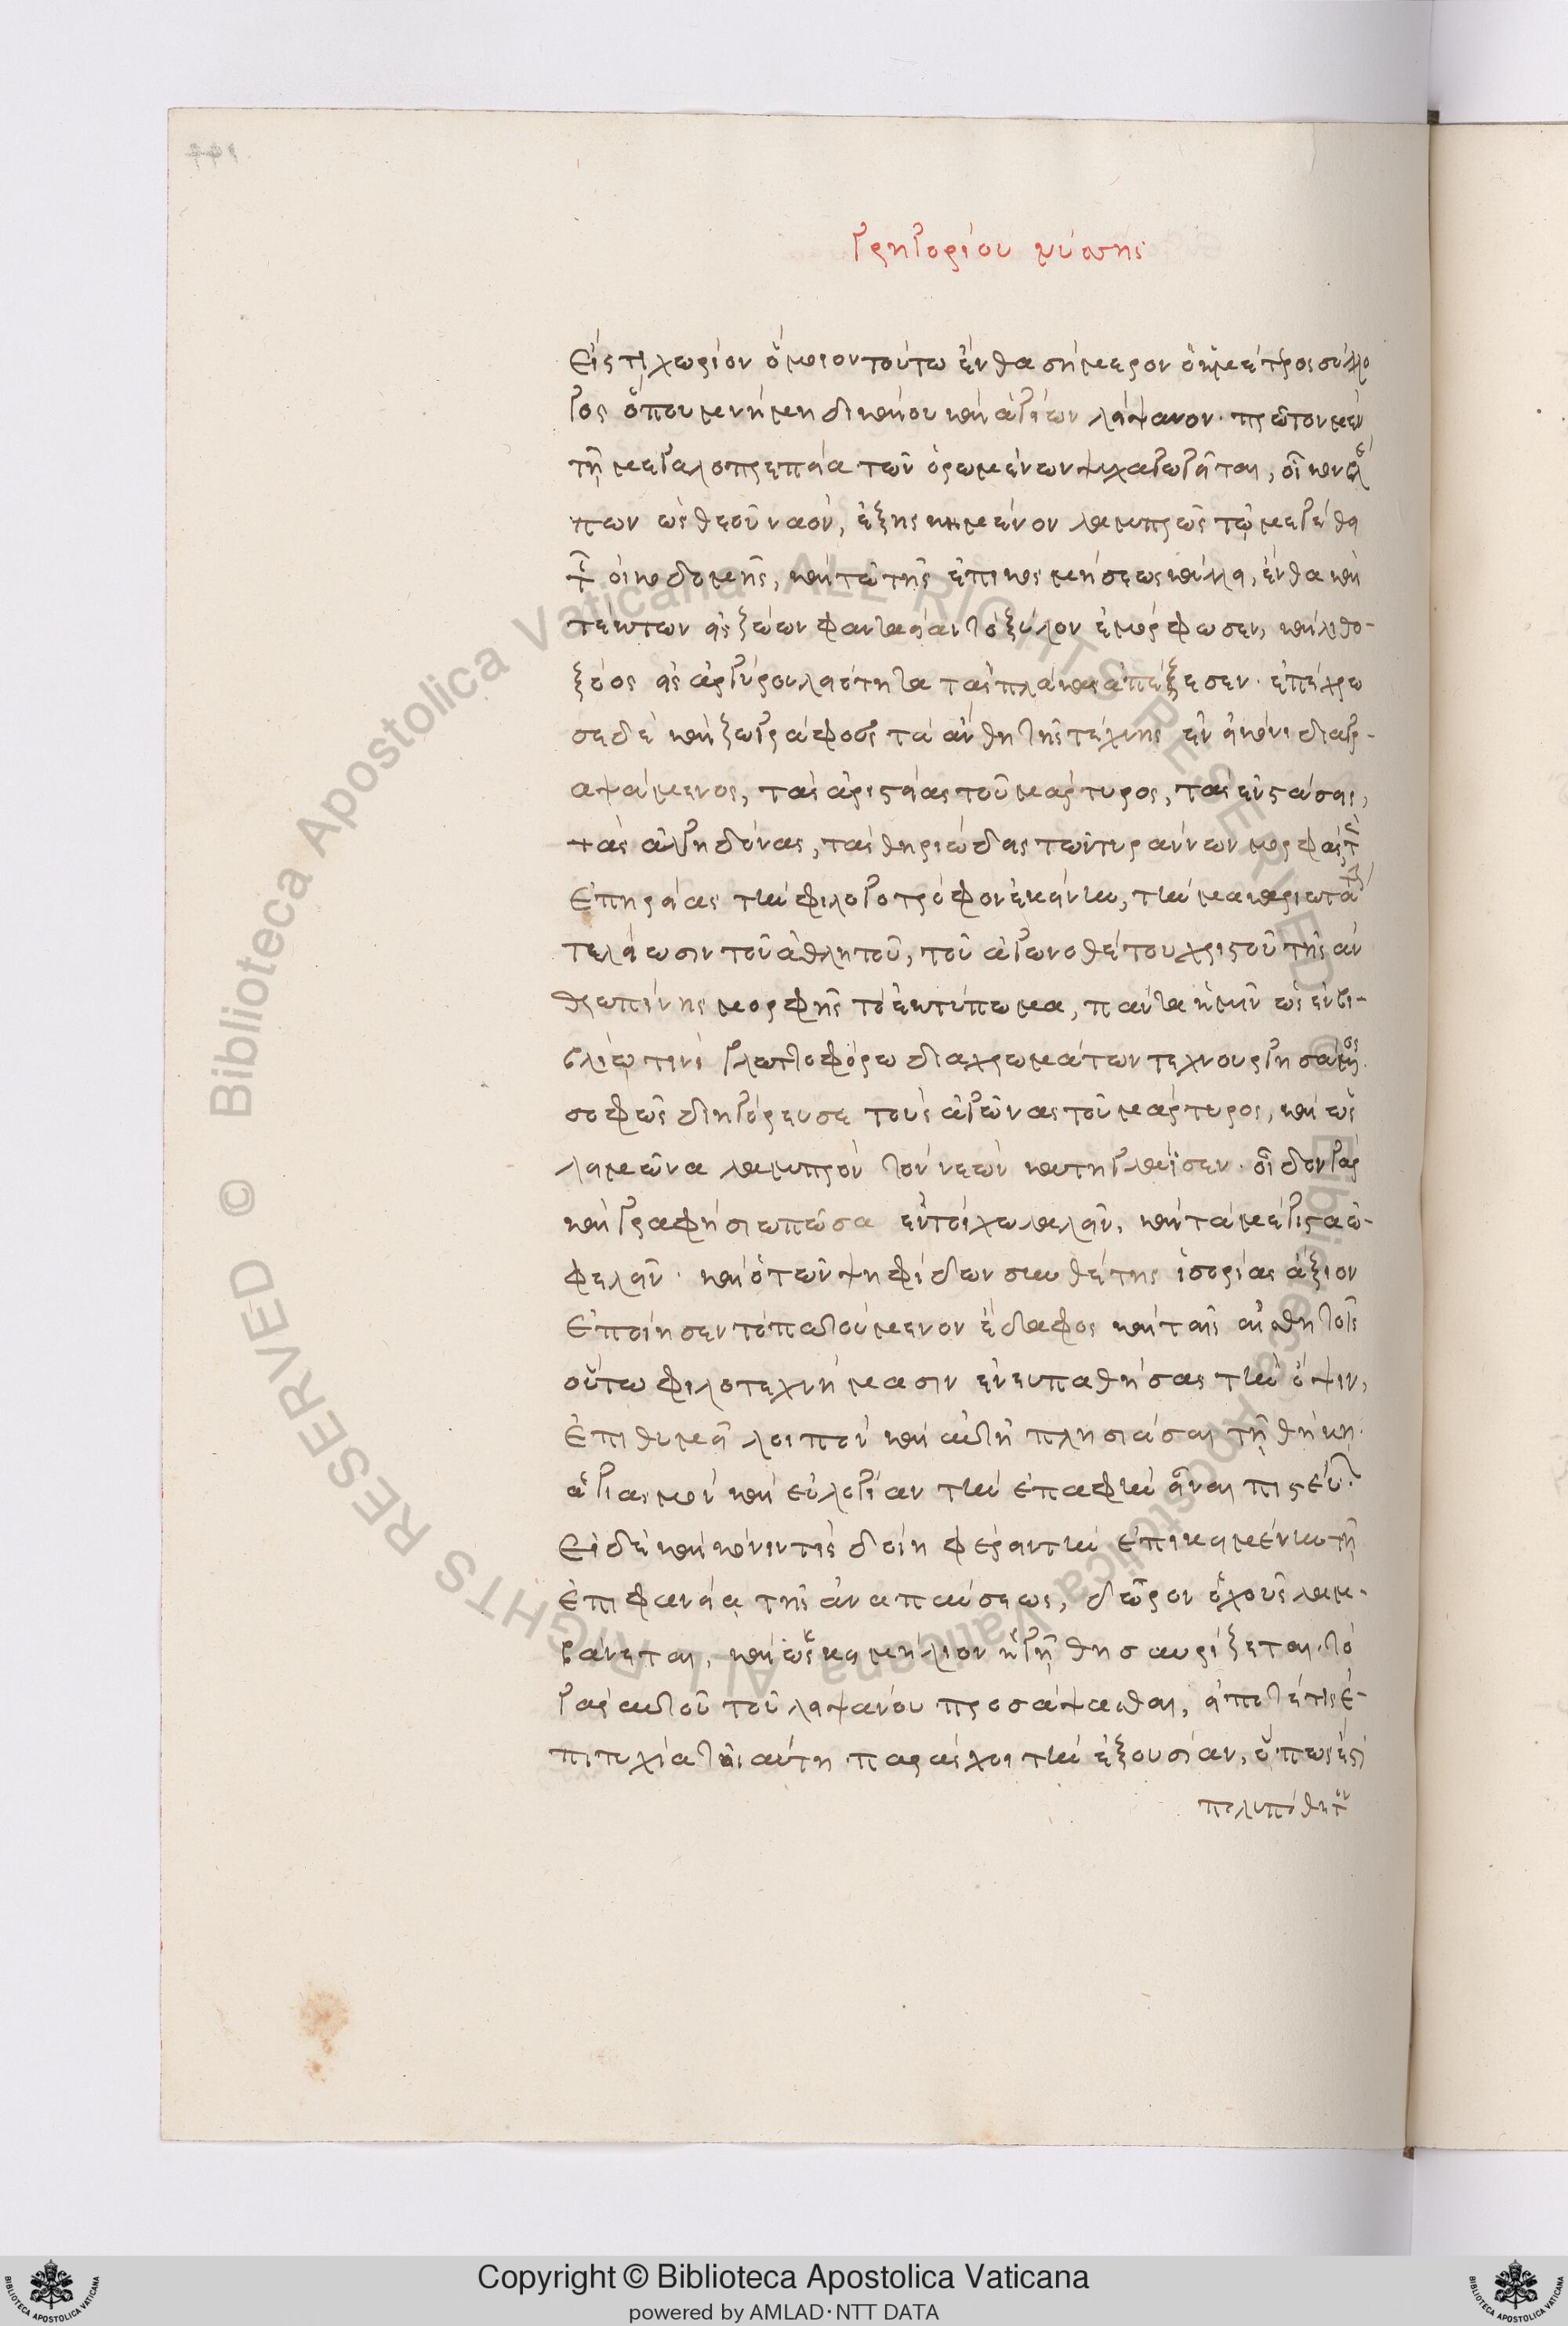 Γρηγορίου νύσης
εἴς τι χωρίον ὅμοιον τούτω ἔνθα σήμερον ὁ ἡμέτερος σύλλο
γος ὅπου μνήμη δικαίου καὶ ἁγίων λείψανον· πρῶτον μὲν
τῇ μεγαλοπρεπεία τῶν ὁρωμένων ψυχαγωγεῖται, οἶκον βλέ
πων ὡς θεοῦ ναὸν, ἐξησκημένον λαμπρῶς τῷ μεγέθει
τῆς οἰκοδομῆς, καὶ τῶ τῆς ἐπικοσμήσεως κάλλει, ἔνθα καὶ
τέκτων εἰς ζώων φαντασίαν τὸ ξύλον ἐμόρφωσεν, καὶ λιθο-
ξόος εἰς ἀργύρου λειότητα τὰς πλάκας ἀπέξεσεν· ἐπέχρω
σε δὲ καὶ ζωγράφος τὰ ἄνθη τῆς τέχνης ἐν εἰκόνι διαγρ-
αψάμενος, τὰς ἀριστείας τοῦ μάρτυρος, τὰς ἐνστάσεις,
τὰς ἀλγηδόνας, τὰς θηριώδεις τῶν τυράννων μορφὰς τὰς
ἐπηρείας τὴν φλογοτρόφον ἐκείνην, τὴν μακαριωτάτην
τελείωσιν τοῦ ἀθλητοῦ, τοῦ ἀγωνοθέτου χριστοῦ τῆς ἀν
θρωπίνης μορφῆς τὸ ἐκτύπωμα, πάντα ἡμῖν ὡς ἐν βι-
βλίῳ τινὶ γλωττοφόρω διὰ χρωμάτων τεχνουργησάμενος
σοφῶς διηγόρευσε τοὺς ἀγῶνας τοῦ μάρτυρος, καὶ ὡς
λειμῶνα λαμπρὸν τὸν νεὼν κατηγλάϊσεν· οἶδεν γὰρ
καὶ γραφὴ σιωπῶσα ἐν τοίχω λαλεῖν, καὶ τὰ μέγιστα ὠ-
φελεῖν· καὶ ὁ τῶν ψηφίδων συνθέτης ἱστορίας ἄξιον
ἐποίησεν τὸ πατούμενον ἔδαφος καὶ τοῖς αἰσθητοῖς
οὕτω φιλοτεχνήμασιν ἐνευπαθήσας τὴν ὄψιν,
ἐπιθυμεῖ λοιπὸν καὶ αὐτῇ πλησιάσαι τῇ θήκῃ·
ἁγιασμὸν καὶ εὐλογίαν τὴν ἐπαφὴν εἶναι πιστεύων
εἰ δὲ καὶ κόνιν τὶς δοίη φέρειν τὴν ἐπικειμένην τῇ
ἐπιφανείᾳ τῆς ἀναπαύσεως, δῶρον ὁ χοῦς λαμ-
βάνεται, καὶ ὡς κειμήλιον ἡ γῆ θησαυρίζεται· τὸ
γὰρ αὐτοῦ τοῦ λειψάνου προσάψασθαι, εἴποτέ τις ἐ-
πιτυχία τοιαύτη παράσχοι τὴν ἐξουσίαν, ὅπως ἐστὶ
πολυπόθητον